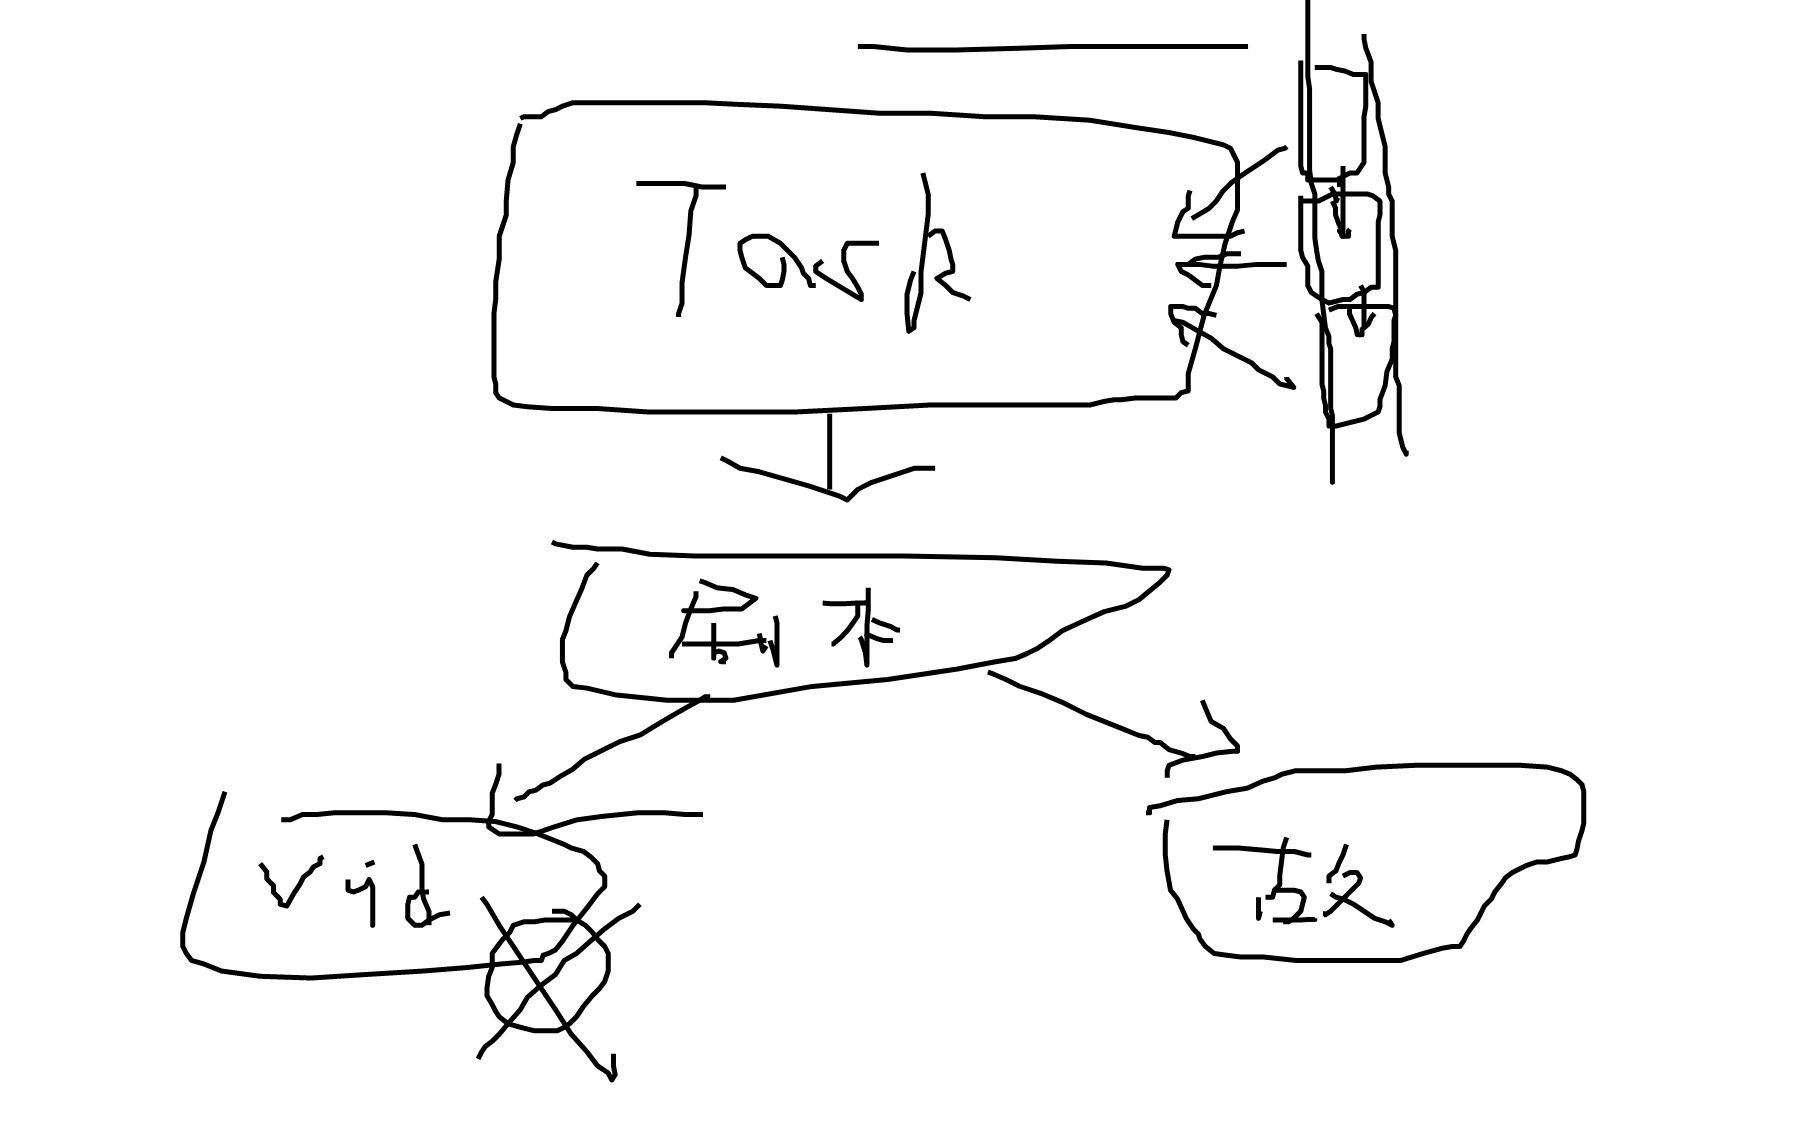 Task
剧本
Vid
故